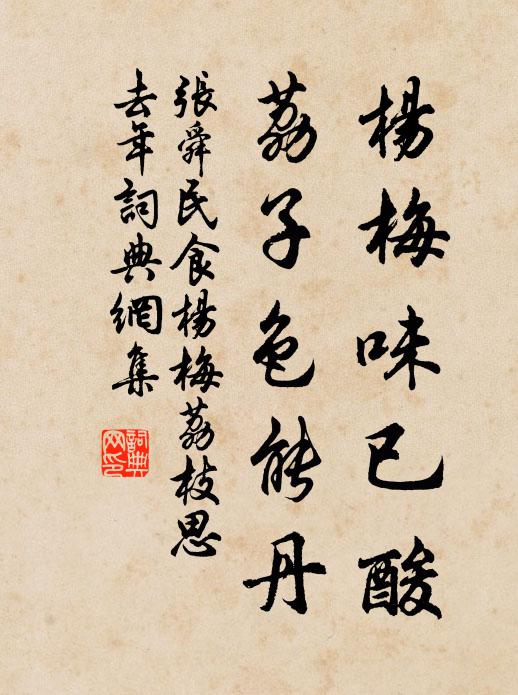 楊梅味已酸
荔子色能丹
張舜民食楊梅荔枝思
去年詞典網集
詞典网印